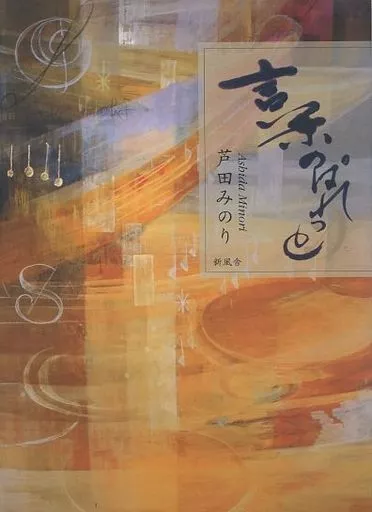 言葉のぱれっと
芦田みのり
Ashida Minori
新風舎